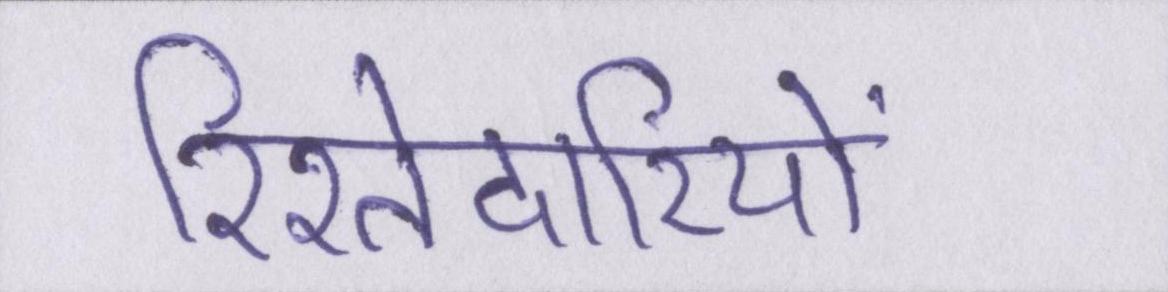 रिश्तेदारियों